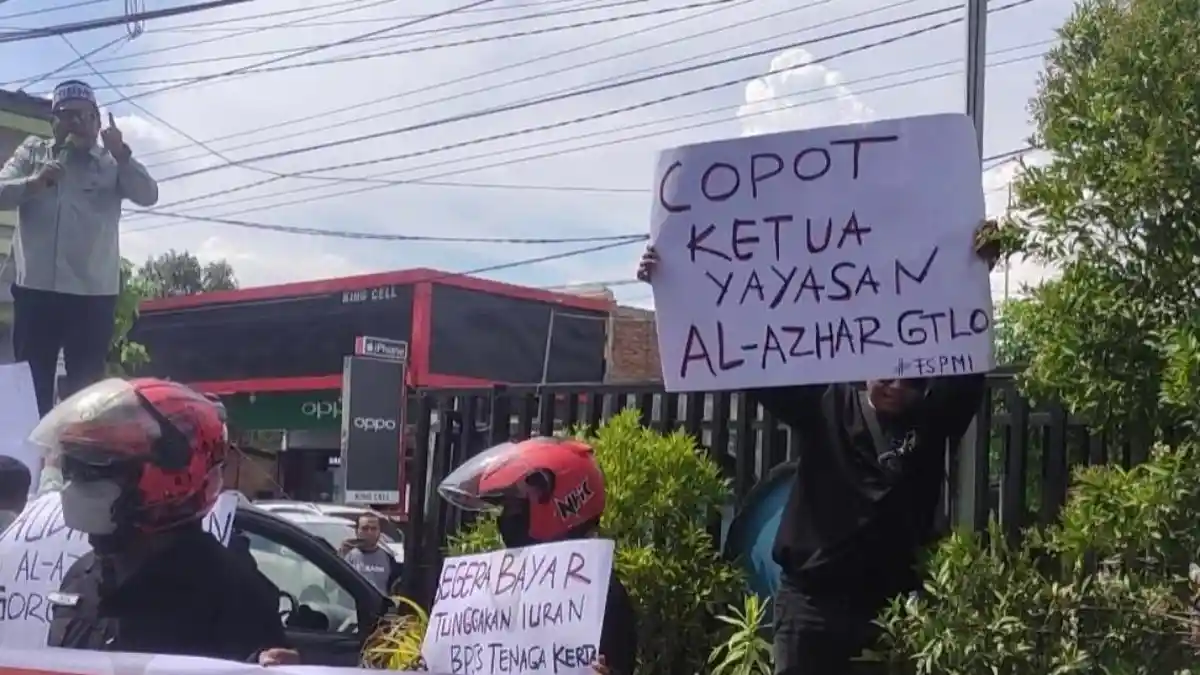 COPOT
KETUA
YAYASAN
AL-AZHAR GTLO
#FSPMI
KING CELL
iPhone
oppo
oppo
KING CELL
NHK
SEGERA BAYAR
TUNGGAKAN IURAN
BPJS TENAGA KERJA
AL-A
GORO